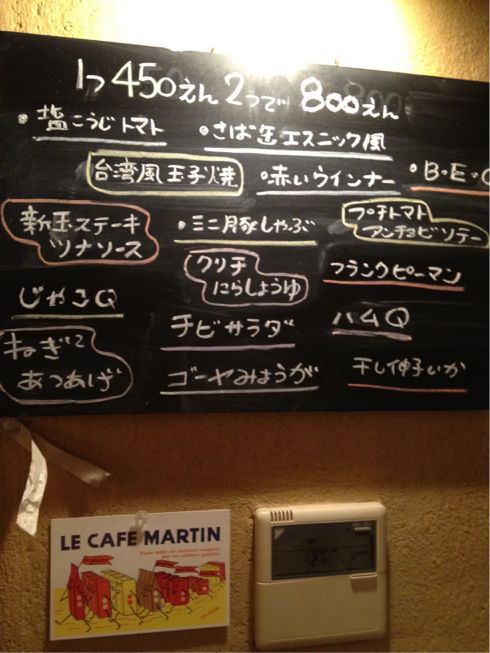 1つ450えん 2つで800えん
・塩こうじトマト ・さば缶エスニック風
台湾風玉子焼 ・赤いウインナー ・B・E・
新玉ステーキ
ツナソース
・ミニ豚しゃぶ
プチトマト
アンチョビソテー
クリチ
にらしょうゆ
フランクピーマン
じゃこQ
チビサラダ
ハムQ
ねぎ
あつあげ
ゴーヤみょうが
干し伸子いか
LE CAFE MARTIN